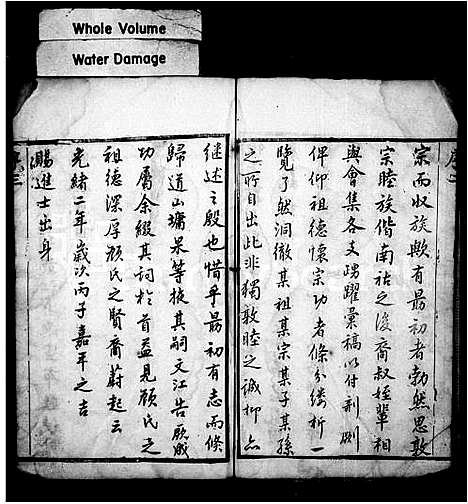 Whole Volume
Water Damage
宗而收族歟有最初者勃然思敦
宗睦族偕南祜之後裔叔姪輩相
與會集各支踴躍彙稿以付剞劂
俾仰祖德懷宗功者條分縷析一
覽了然洞徹某祖某宗某子某孫
之所自出此非獨敦睦之誠抑亦
繼述之殷也惜乎最初有志而倏
歸道山墉杲等掖其嗣文江告厥成
功屬余綴其詞於首益見顧氏之
祖德深厚顧氏之賢裔蔚起云
光緒二年歲次丙子嘉平之吉
賜進士出身